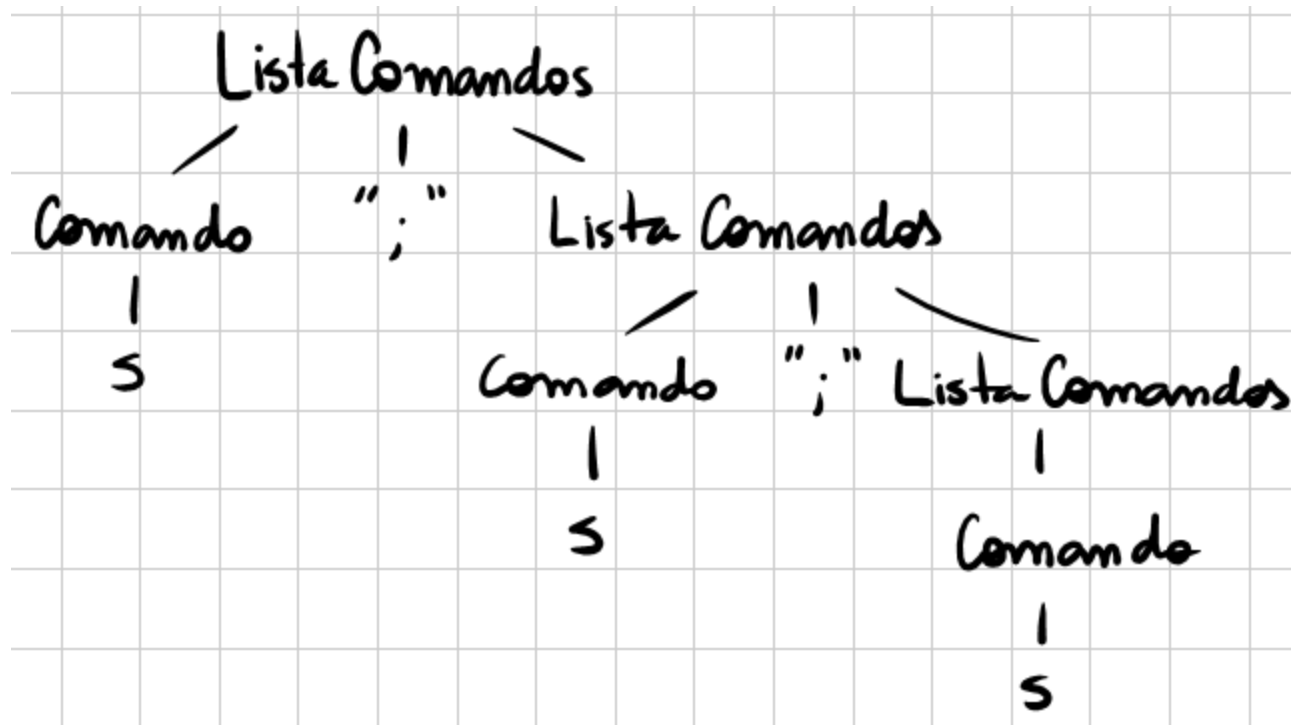 Lista Comandos
Comando ";" Lista Comandos
s Comando ";" Lista Comandos
s Comando
s